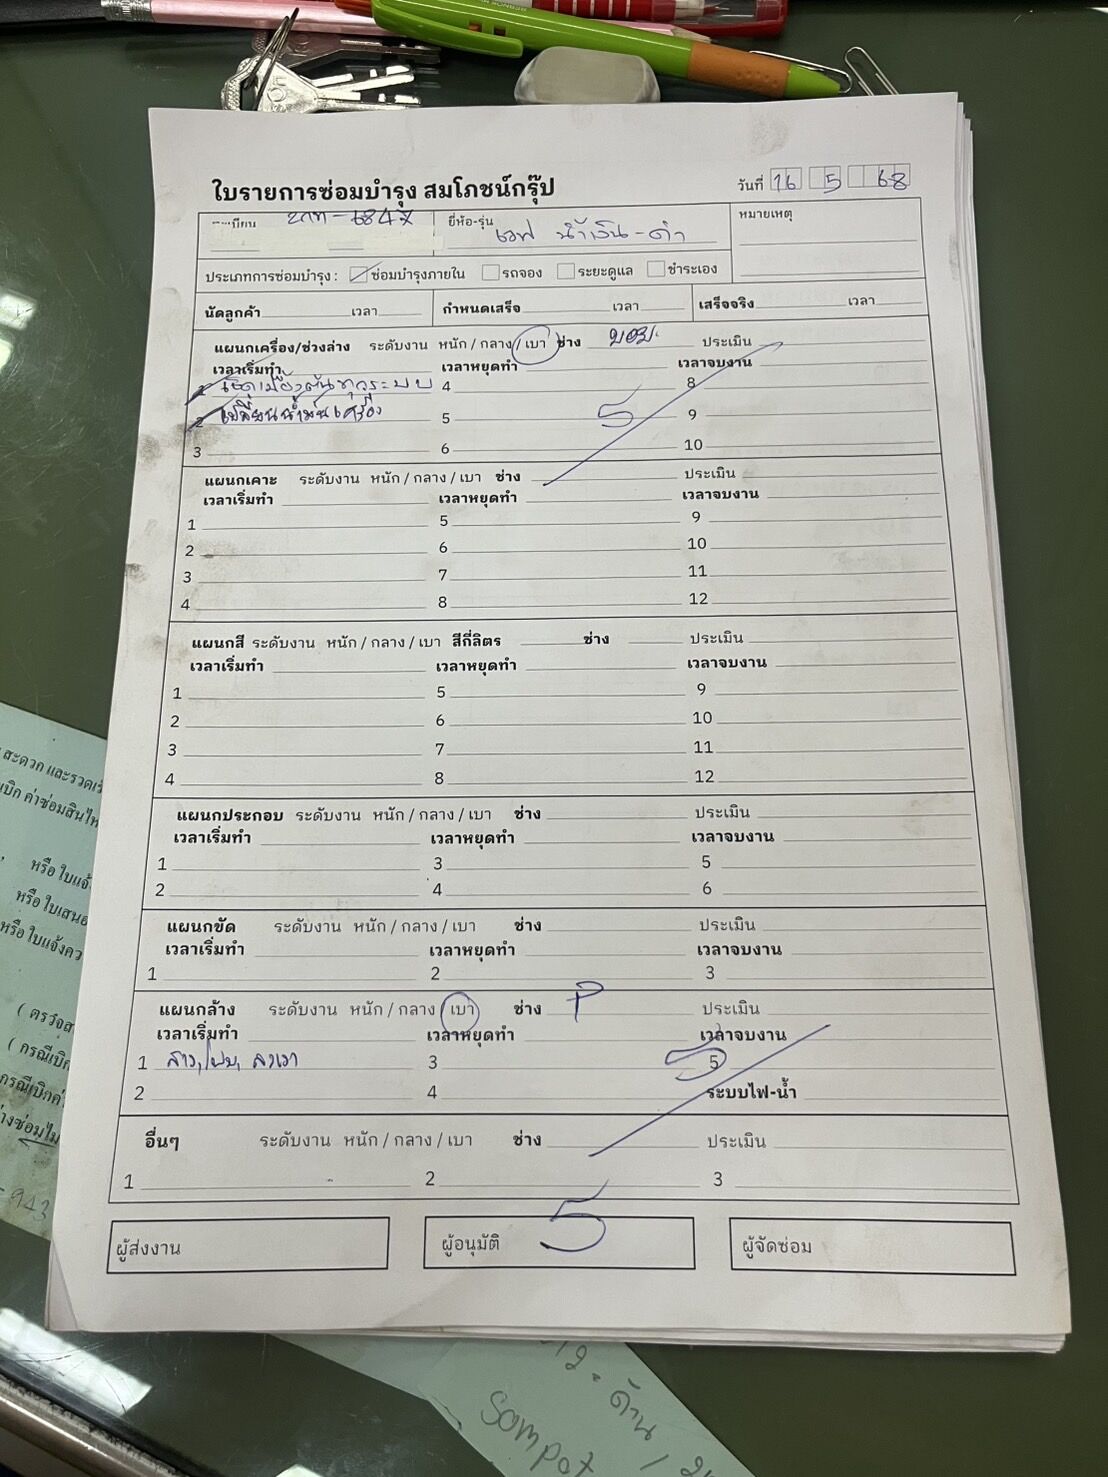 ใบรายการซ่อมบำรุง สมโภชน์กรุ๊ป
วันที่ 16 5 68
ยี่ห้อ-รุ่น เวฟ น้ำเงิน-ดำ
หมายเหตุ
ประเภทการซ่อมบำรุง : ซ่อมบำรุงภายใน รถจอง ระยะดูแล ชำระเอง
นัดลูกค้า เวลา กำหนดเสร็จ เวลา เสร็จจริง เวลา
แผนกเครื่อง/ช่วงล่าง ระดับงาน หนัก / กลาง / เบา ช่าง บอม. ประเมิน
เวลาเริ่มทำ เวลาหยุดทำ เวลาจบงาน
1 เช็คเบื้องต้นทุกระบบ 4 8
2 เปลี่ยนน้ำมันเครื่อง 5 9
3 6 10
แผนกเคาะ ระดับงาน หนัก / กลาง / เบา ช่าง ประเมิน
เวลาเริ่มทำ เวลาหยุดทำ เวลาจบงาน
1 5 9
2 6 10
3 7 11
4 8 12
แผนกสี ระดับงาน หนัก / กลาง / เบา สีกี่ลิตร ช่าง ประเมิน
เวลาเริ่มทำ เวลาหยุดทำ เวลาจบงาน
1 5 9
2 6 10
3 7 11
4 8 12
แผนกประกอบ ระดับงาน หนัก / กลาง / เบา ช่าง ประเมิน
เวลาเริ่มทำ เวลาหยุดทำ เวลาจบงาน
1 3 5
2 4 6
แผนกขัด ระดับงาน หนัก / กลาง / เบา ช่าง ประเมิน
เวลาเริ่มทำ เวลาหยุดทำ เวลาจบงาน
1 2 3
แผนกล้าง ระดับงาน หนัก / กลาง / เบา ช่าง P ประเมิน
เวลาเริ่มทำ เวลาหยุดทำ เวลาจบงาน
1 3 5
2 4 ระบบไฟ-น้ำ
อื่นๆ ระดับงาน หนัก / กลาง / เบา ช่าง ประเมิน
1 2 3
ผู้ส่งงาน ผู้อนุมัติ ผู้จัดซ่อม
สะดวก และรวดเร็
เบิก ค่าซ่อมสินไห
หรือ ใบแจ้
หรือ ใบเสนอ
หรือ ใบแจ้งคว
( ตรวจส
( กรณีเบิก
กรณีเบิกค่
างซ่อมไม
943
12. ด้าน /
Sompot